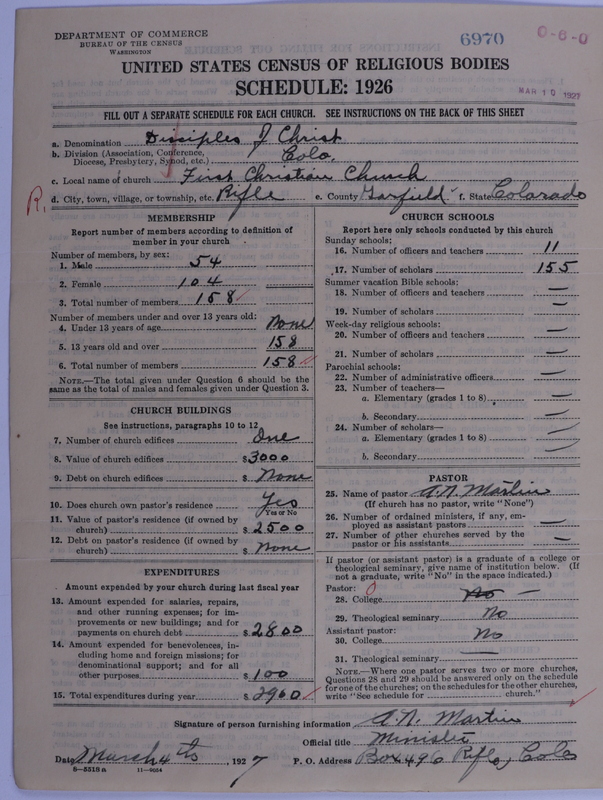 DEPARTMENT OF COMMERCE
BUREAU OF THE CENSUS
WASHINGTON
6970
0-6-0
MAR 10 1927
UNITED STATES CENSUS OF RELIGIOUS BODIES
SCHEDULE: 1926
FILL OUT A SEPARATE SCHEDULE FOR EACH CHURCH. SEE INSTRUCTIONS ON THE BACK OF THIS SHEET
a. Denomination Disciples of Christ
b. Division (Association, Conference, Diocese, Presbytery, Synod, etc.) Colo.
c. Local name of church First Christian Church
R. d. City, town, village, or township, etc. Rifle e. County Garfield f. State Colorado
MEMBERSHIP
Report number of members according to definition of
member in your church
Number of members, by sex:
1. Male 54
2. Female 104
3. Total number of members 158
Number of members under and over 13 years old:
4. Under 13 years of age None
5. 13 years old and over 158
6. Total number of members 158
NOTE.—The total given under Question 6 should be the
same as the total of males and females given under Question 3.
CHURCH BUILDINGS
See instructions, paragraphs 10 to 12
7. Number of church edifices One
8. Value of church edifices $3000
9. Debt on church edifices $ None
10. Does church own pastor's residence Yes
Yes or No
11. Value of pastor's residence (if owned by
church) $ 2500
12. Debt on pastor's residence (if owned by
church) $ None
EXPENDITURES
Amount expended by your church during last fiscal year
13. Amount expended for salaries, repairs,
and other running expenses; for im-
provements or new buildings; and for
payments on church debt $ 2800
14. Amount expended for benevolences, in-
cluding home and foreign missions; for
denominational support; and for all
other purposes $ 100
15. Total expenditures during year $ 2960
CHURCH SCHOOLS
Report here only schools conducted by this church
Sunday schools:
16. Number of officers and teachers 11
17. Number of scholars 155
Summer vacation Bible schools:
18. Number of officers and teachers —
19. Number of scholars —
Week-day religious schools:
20. Number of officers and teachers —
21. Number of scholars —
Parochial schools:
22. Number of administrative officers —
23. Number of teachers—
a. Elementary (grades 1 to 8) —
b. Secondary —
24. Number of scholars—
a. Elementary (grades 1 to 8) —
b. Secondary —
PASTOR
25. Name of pastor A. N. Martin
(If church has no pastor, write "None")
26. Number of ordained ministers, if any, em-
ployed as assistant pastors —
27. Number of other churches served by the
pastor or his assistants —
If pastor (or assistant pastor) is a graduate of a college or
theological seminary, give name of institution below. (If
not a graduate, write "No" in the space indicated.)
Pastor: 0
28. College No —
29. Theological seminary No
Assistant pastor:
30. College No
31. Theological seminary —
NOTE.—Where one pastor serves two or more churches,
Questions 28 and 29 should be answered only on the schedule
for one of the churches; on the schedules for the other churches,
write "See schedule for church."
Signature of person furnishing information A. N. Martin
Official title Minister
Date March 4th, 1927 P. O. Address Box 496 Rifle, Colo
8—5518a 11—9054